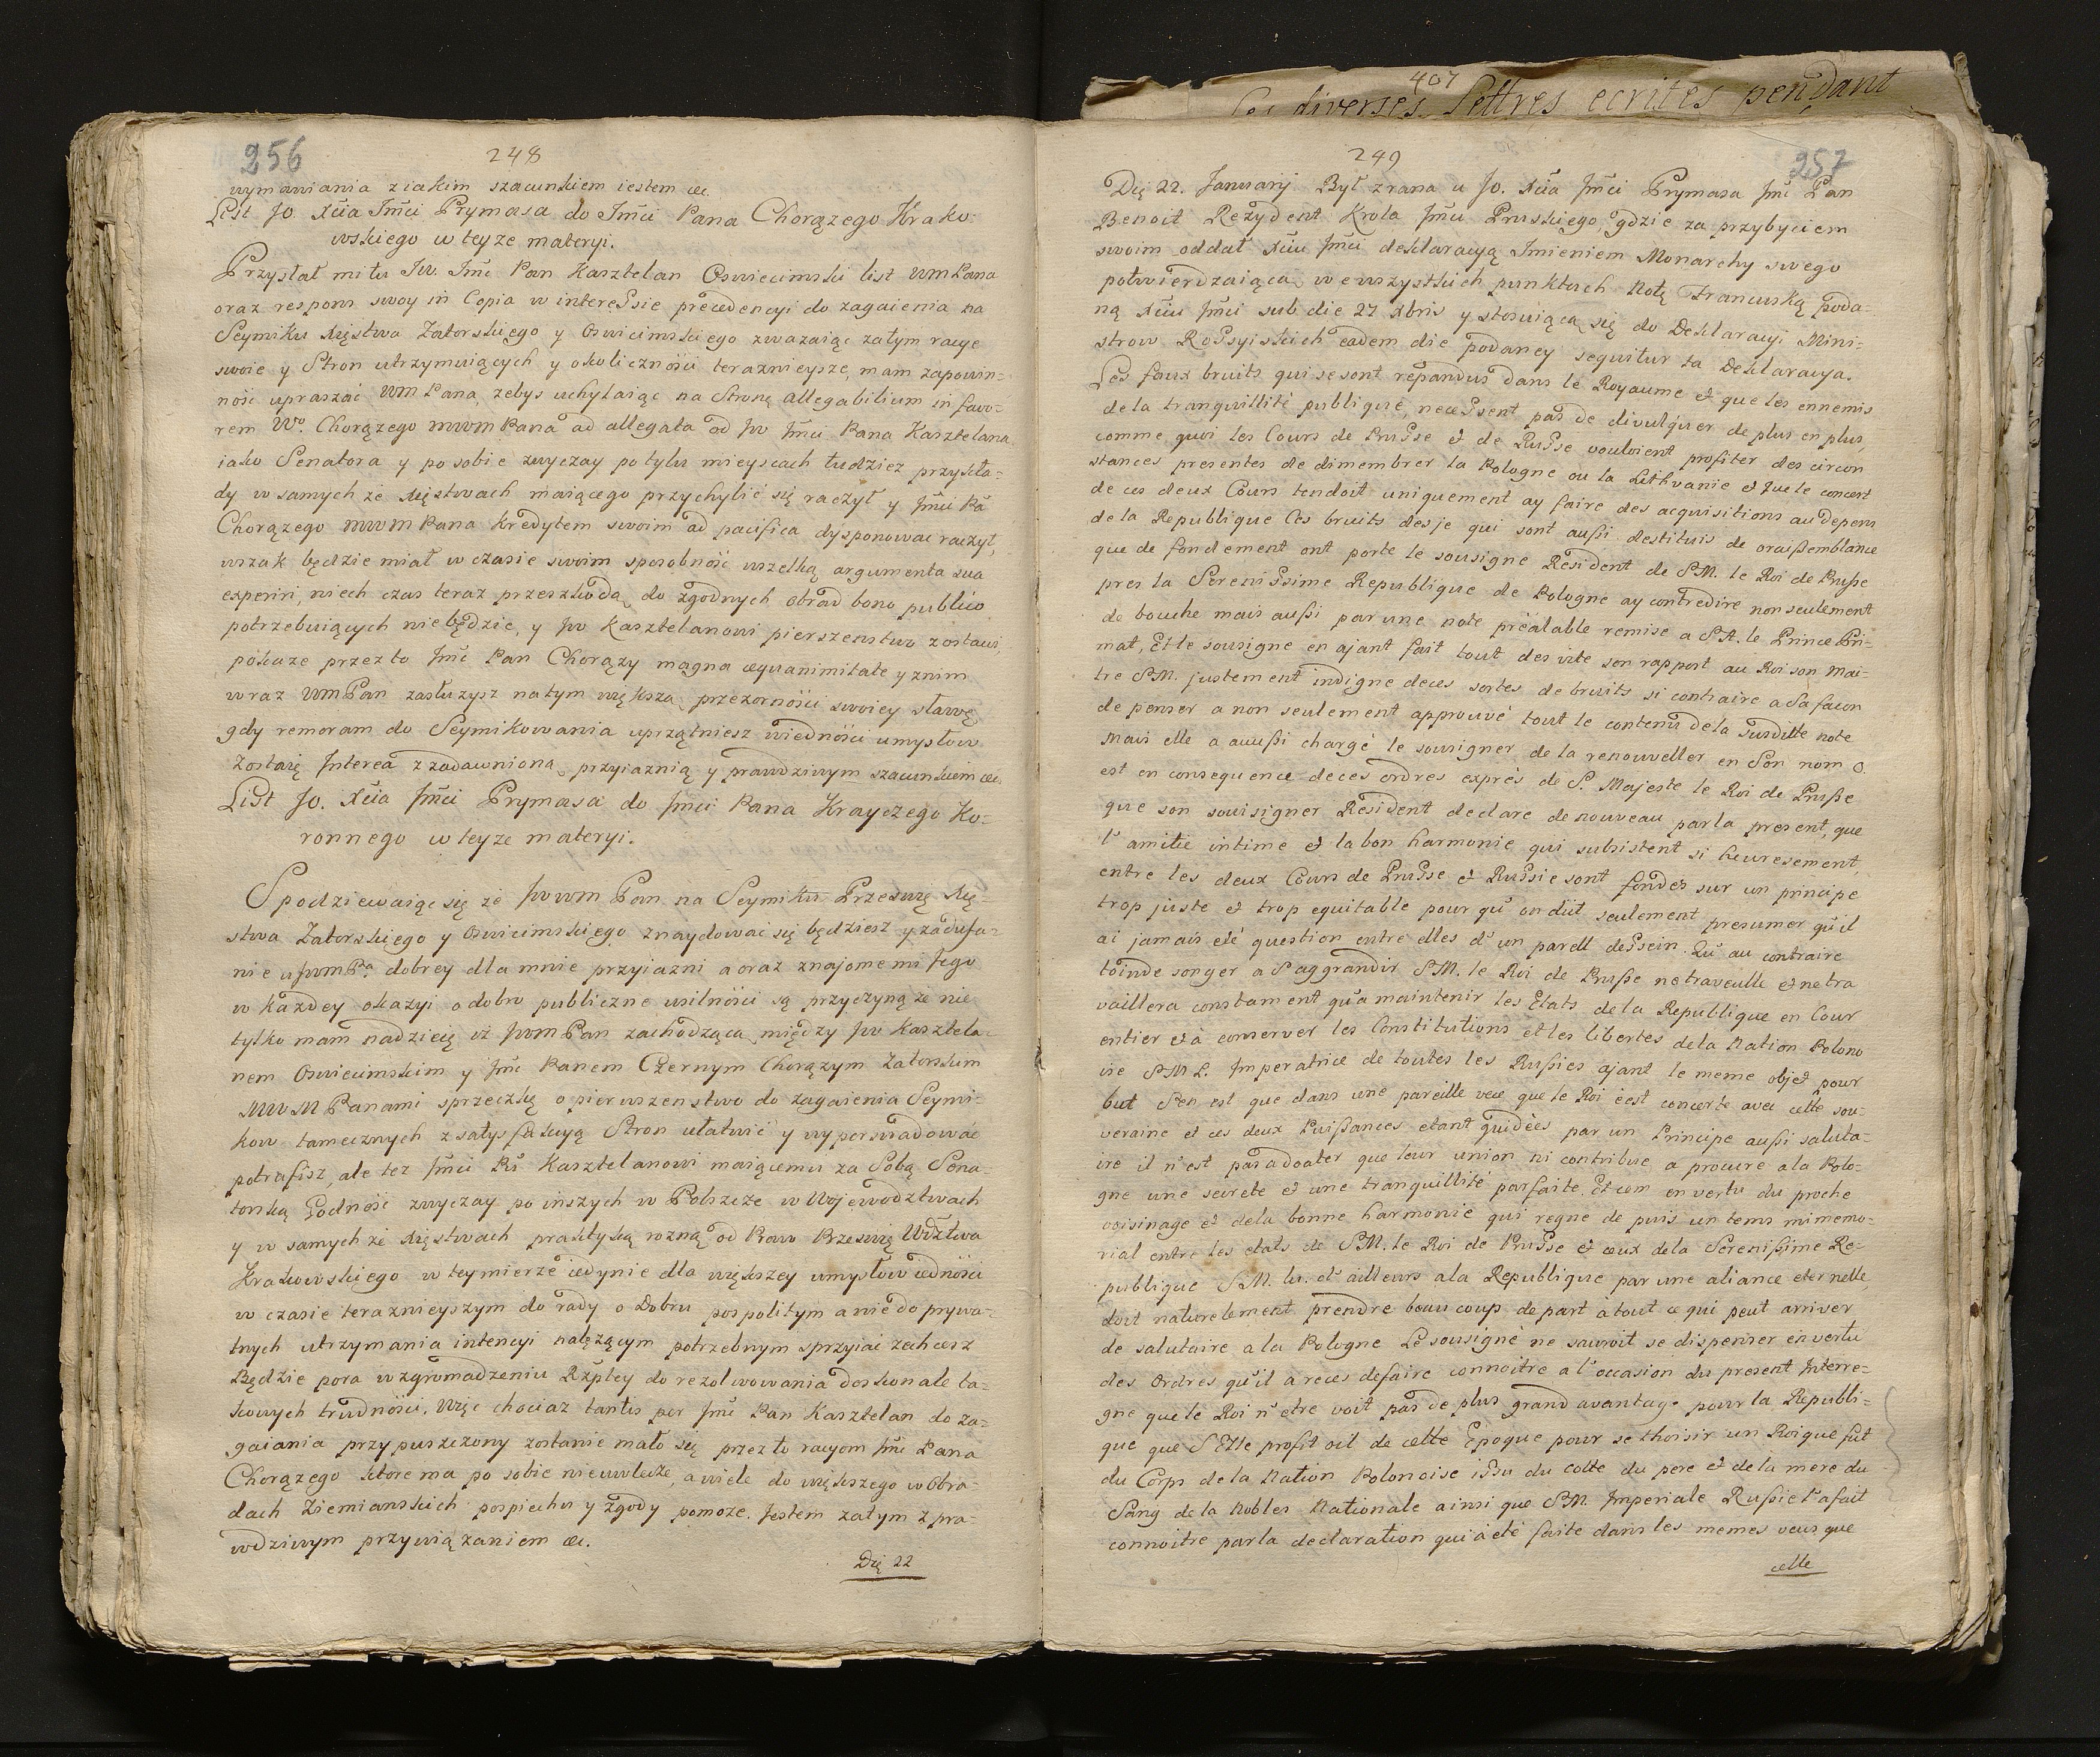 256
248
wymawiania z iakim szacunkiem iestem etc.
List Jo. Xcia Jmci Prymasa do Jmci Pana Chorązego Krako-
wskiego w teyze materyi.
Przysłał mi tu Jw. Jmć Pan Kasztelan Oswiecimski list WmPana
oraz respons swoy in Copia w interessie precedencyi do zagaienia na
Seymiku Xięstwa Zatorskiego y Oswiecimskiego zwazaiąc zatym racye
swoie y Stron utrzymuiących y okoliczności teraznieysze, mam zapowin-
ność upraszać WmPana, zebys uchylaiąc na Stronę allegabilium in favo-
rem Wo. Chorązego mwmPana ad allegata od Jw Jmci Pana Kasztelana
iako Senatora y po sobie zwyczay po tylu mieyscach tudziez przykła-
dy w samych ze Xięstwach maiącego przychylić się raczył y Jmci Pa
Chorązego mwmPana Kredytem swoim ad pacifica dysponowac raczył,
wszak będzie miał w czasie swoim sposobność wszelką argumenta sua
experiri, niech czas teraz przeszkodą do zgodnych obrad bono publico
potrzebuiących nie będzie, y Jw Kasztelanowi pierszenstwo zostawi,
pokaze przez to Jmć Pan Chorązy magna aequanimitate y z nim
wraz WmPan zasłuzysz na tym większą przezorności swoiey sławę
gdy remoram do Seymikowania uprzątniesz wiedności umysłow
Zostaię Interea z zadawnioną przyiaznią y prawdziwym szacunkiem etc.
List Jo. Xcia Jmci Prymasa do Jmci Pana Krayczego Ko-
ronnego w teyze materyi.
Spodziewaiąc się ze JwwmPan na Seymiku Przeswię Xię-
stwa Zatorskiego y Oswiecimskiego znaydowac się będziesz y zadufa-
nie w JwmPa. dobrey dla mnie przyiazni a oraz znajome mi Jego
w kazdey okazyi o dobro publiczne usilności są przyczyną ze nie
tylko mam nadzieię iz JwmPan zachodzącą między Jw Kasztela-
nem Oswiecimskim y Jmć Panem Czernym Chorązym Zatorskim
MwM Panami sprzeczkę o pierwszenstwo do zagaienia Seymi-
kow tamecznych z satysfakcyą Stron ułatwić y wyperswadowac
potrafisz, ale tez Jmci Pu Kasztelanowi maiącemu za Sobą Sena-
torską Godność zwyczay po inszych w Polszcze w Wojewodztwach
y w samych ze Xięstwach praktyką rozną od Praw Przeswię Wdztwa
Krakowskiego w tey mierze iedynie dla większey umysłow iedności
w czasie teraznieyszym do rady o Dobru pospolitym a nie do prywa-
tnych utrzymania intencyi nalęzącym potrzebnym sprzyiac zechcesz
Będzie pora w zgromadzeniu Rzpltey do rezolwowania doskonale ta-
kowych trudności. Więc chociaz tantis per Jmć Pan Kasztelan do za-
gaiania przypuszczony zostanie mało się przez to racyom Jmć Pana
Chorązego ktore ma po sobie nieuwlecze, a wiele do większego w Obra-
dach Ziemianskich pospiechu y zgody pomoze. Jestem zatym z pra-
wdziwym przywiązaniem etc.
Dię 22
407
les diverses Lettres ecrites pendant
249
257
Dię 22. Januarij Był z rana u Jo. Xcia Jmci Prymasa Jmć Pan
Benoit Rezydent Krola Jmci Pruskiego, gdzie za przybyciem
swoim oddał Xciu Jmci deklaracyą Imieniem Monarchy swego
potwierdzaiącą we wszystkich punktach Notę Francuską poda-
ną Xciu Jmci sub die 27 Xbris y stosuiącą się do Deklaracyi Mini-
strow Rossyiskich eadem die podaney sequitur ta Deklaracya.
Les faux bruits, qui se sont repandus dans le Royaume et que les ennemis
de la tranquillité publique, necessent pas de divulguer de plus en plus,
comme quoi les Cours de Prusse et de Russe vouloient profiter des circon
stances presentes de dimembrer la Pologne ou la Lithvanie et que le concert
de ces deux Cours tendoit uniquement ay faire des acquisitions au depens
de la Republique les bruits desje qui sont aussi destituis de oraissemblance
que de fondement ont porte le sousigne Resident de S.M. le Roi de Prusse
pres la Serenissime Republique de Pologne ay contredire non seulement
de bouche mais aussi par une note prealable remise a S.A. le Prince Pri-
mat, Et le sousigne en ajant fait tout des vite son rapport au Roi son Mai-
tre S.M. justement indigne deces sortes de bruits si contraire a Sa facon
de penser a non seulement approuvé tout le contenu dela susditte note
Mais elle a auussi chargé le sousigner de la renouveller en Son nom O.
est en consequence deces ordres exprés de S. Majeste le Roi de Prusse
que son souisigner Resident declare de nouveau par la present, que
l'amitie intime et la bon harmonie qui subsistent si heuresement,
entre les deux Cours de Prusse et Russie sont fondés sur un principe
trop juste et trop equitable pour qu'on dût seulement presumer qu'il
ai jamais eté question entre elles d'un pareil dessein. Qu'au contraire
toinde songer a S'aggrandir S.M. le Roi de Prusse netraveulle et netra
vaillera constament qu'a maintenir les Etats de la Republique en Cour
entier et à conserver les Constitutions et les libertes dela Nation Polono
ise S.M.L. Imperatrice de toutes les Russies ajant le meme objet pour
but S'en est que dans une pareille veue que le Roi c'est concerte avec cette sou-
veraine et ces deux Puissances etant guidèes par un Principe aussi saluta-
ire il n'est pas adoater que leur union ni contribue a procure a la Polo-
gne une seurete et une tranquillité parfaite. Et com en vertu du proche
voisinage et dela bonne harmonie qui regne de puis un tems mimemo-
rial entre les etats de S.M. le Roi de Prusse et ceux dela Serenissime Re-
publique S.M. lu. d'ailleurs ala Republique par une aliance eternelle,
doit naturelement prendre beaucoup de part à tout ce qui peut arriver
de salutaire a la Pologne Le sousigné ne sauroit se dispenser en vertu
des Ordres qu'il a reces defaire connoitre a l'occasion du present Interre-
gne que le Roi n'etre voit pas de plus grand avantage pour la Republi-
que que S'Elle profit oit de cette Epoque pour se choisir un Roi que fut
du Corps de la Nation Polonoise issu du cotte du pere et de la mere du
Sang de la Nobles Nationale ainsi que S.M. Imperiale Russie l'a fait
connoitre par la declaration qui à eté faite dans les memes veus que
celle